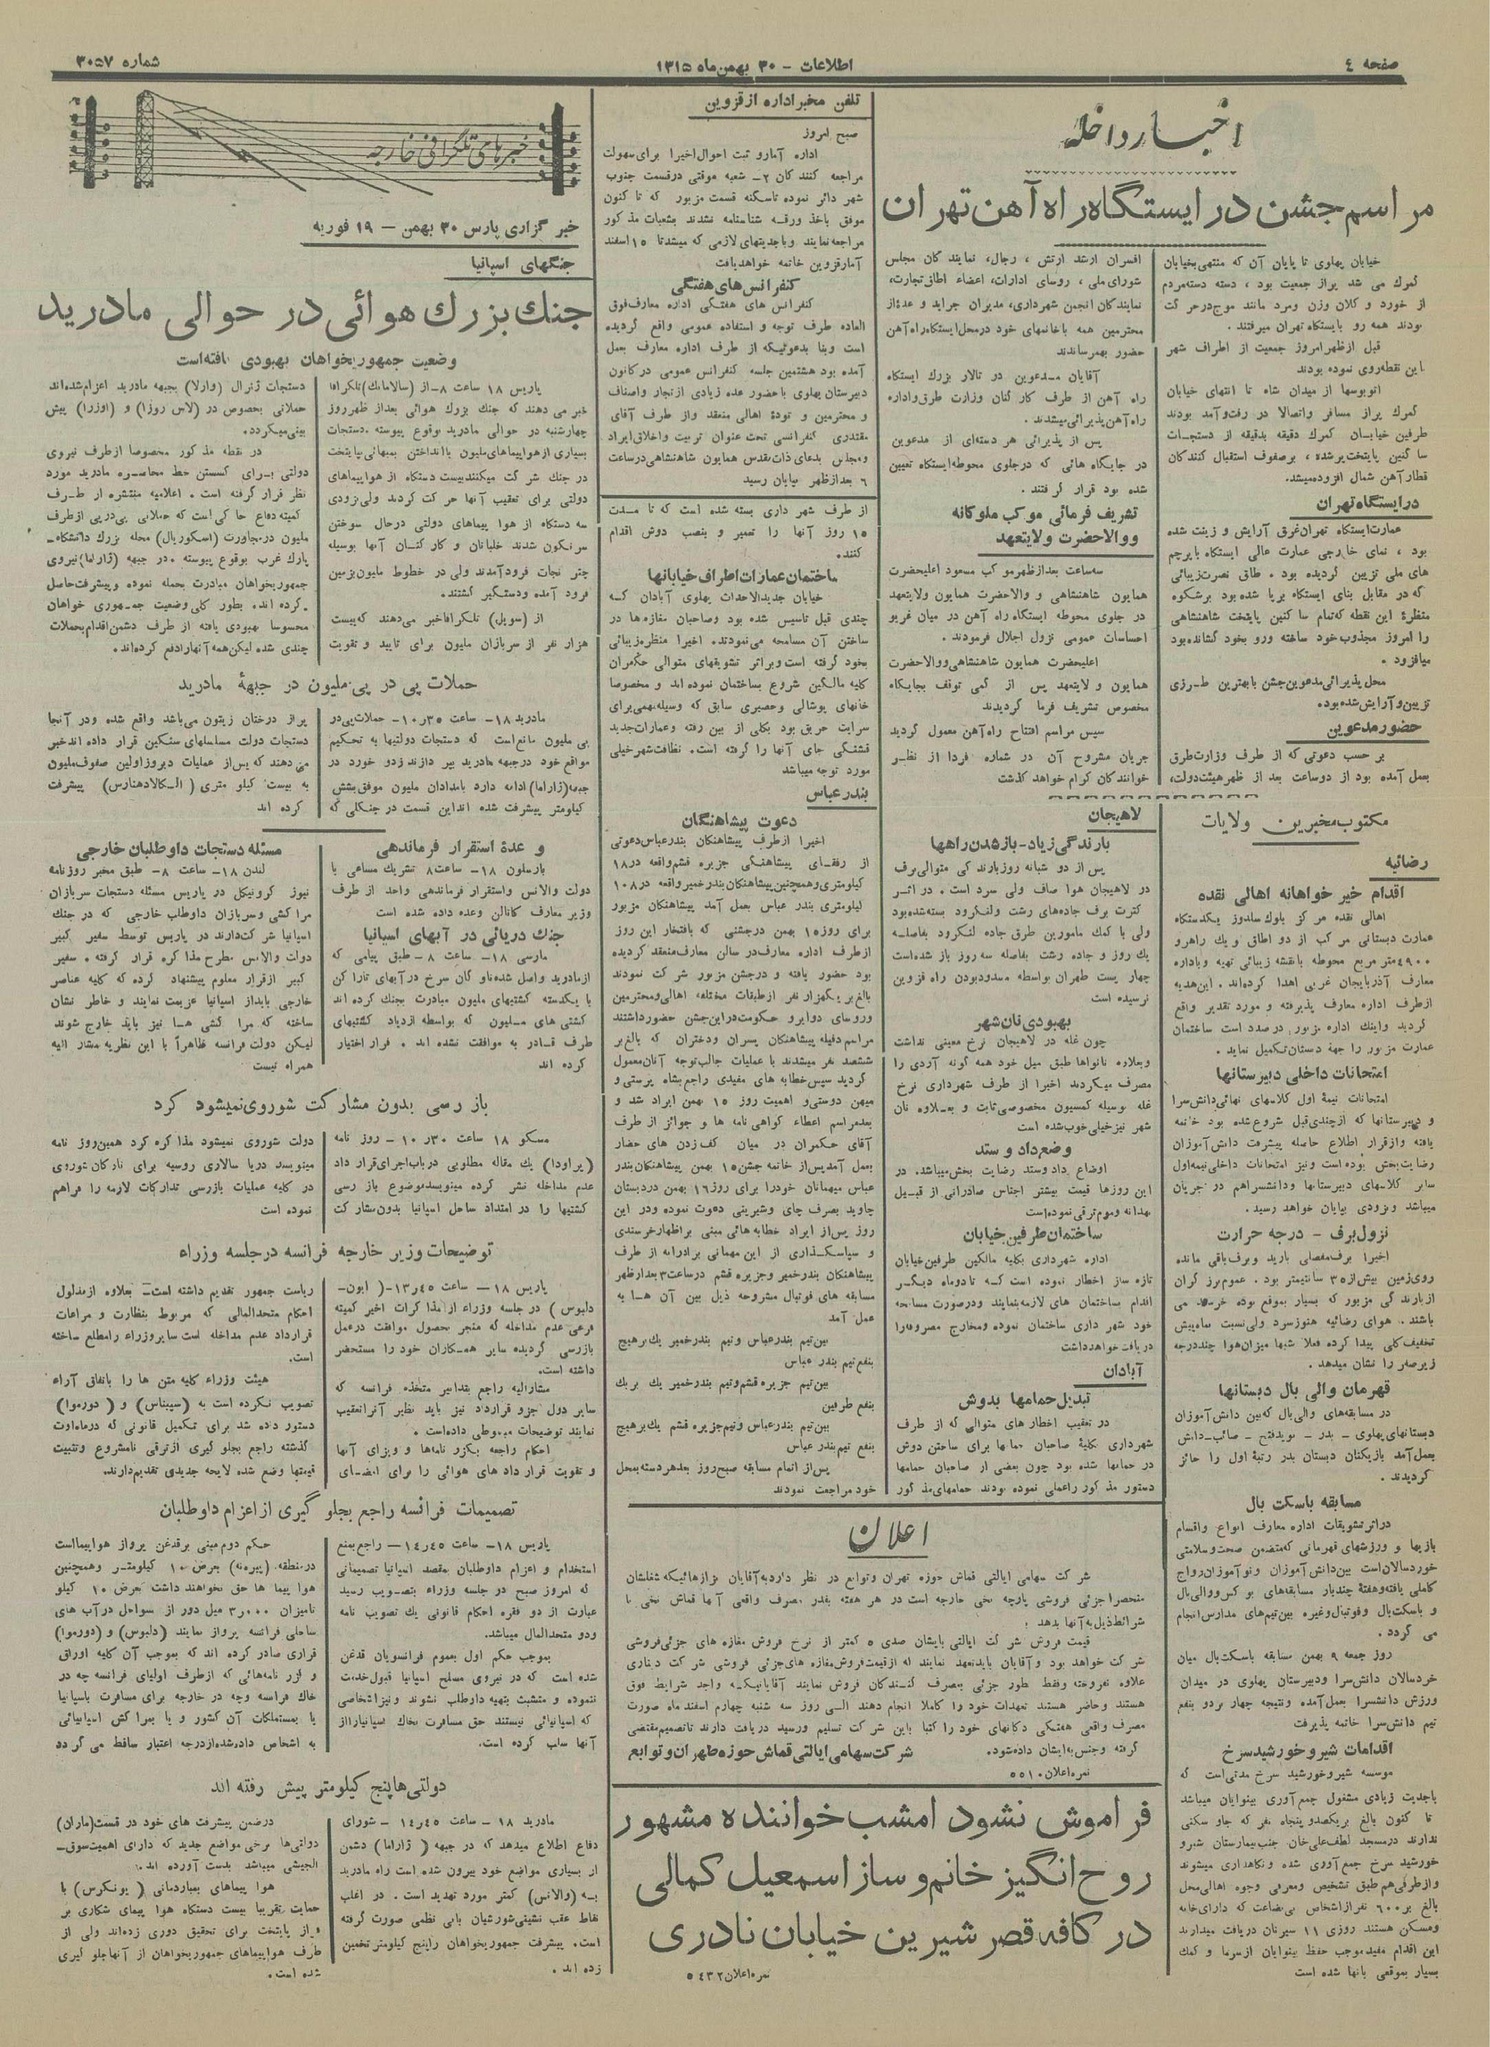 صفحه ٤
اطلاعات - ۳۰ بهمن ماه ۱۳۱۵
شماره ۳۰۵۷
اخبار داخله
مراسم جشن در ایستگاه راه آهن تهران
خیابان پهلوی تا پایان آن که منتهی بخیابان
گمرک می شد پراز جمعیت بود ، دسته دسته مردم
از خورد و کلان وزن ومرد مانند موج در حرکت
بودند همه رو بایستگاه تهران میرفتند .
قبل ازظهر امروز جمعیت از اطراف شهر
باین نقطه روی نموده بودند
اتوبوسها از میدان شاه تا انتهای خیابان
گمرک پراز مسافر واتصالا در رفت وآمد بودند
طرفین خیابان گمرک دقیقه بدقیقه از دستجات
ساکنین پایتخت پرشده ، برصفوف استقبال کنندگان
قطار آهن شمال افزوده میشد.
در ایستگاه تهران
عمارت ایستگاه تهران غرق آرایش و زینت شده
بود ، نمای خارجی عمارت عالی ایستگاه باپرچم
های ملی تزیین گردیده بود . طاق نصرت زیبائی
که در مقابل بنای ایستگاه برپا شده بود برشکوه
منظرۀ این نقطه که تمام ساکنین پایتخت شاهنشاهی
را امروز مجذوب خود ساخته ورو بخود کشانده بود
میافزود .
محل پذیرائی مدعوین جشن با بهترین طرزی
تزیین و آرایش شده بود.
حضور مدعوین
بر حسب دعوتی که از طرف وزارت طرق
بعمل آمده بود از دوساعت بعد از ظهر هیئت دولت،
افسران ارشد ارتش ، رجال، نمایندگان مجلس
شورای ملی ، روسای ادارات، اعضاء اطاق تجارت،
نمایندگان انجمن شهرداری، مدیران جراید و عدۀ از
محترمین همه باخانمهای خود درمحل ایستگاه راه آهن
حضور بهمرساندند
آقایان مدعوین در تالار بزرک ایستگاه
راه آهن از طرف کارکنان وزارت طرق واداره
راه آهن پذیرائی میشدند .
پس از پذیرائی هر دسته ای از مدعوین
در جایگاه هائی که درجلوی محوطه ایستگاه تعیین
شده بود قرار گرفتند .
تشریف فرمائی موکب ملوکانه
ووالاحضرت ولایتعهد
سه ساعت بعدازظهر موکب مسعود اعلیحضرت
همایون شاهنشاهی و والاحضرت همایون ولایتعهد
در جلوی محوطه ایستگاه راه آهن در میان غریو
احساسات عمومی نزول اجلال فرمودند .
اعلیحضرت همایون شاهنشاهی ووالاحضرت
همایون ولایتعهد پس از کمی توقف بجایگاه
مخصوص تشریف فرما گردیدند
سپس مراسم افتتاح راه آهن معمول گردید
جریان مشروح آن در شماره فردا از نظر
خوانندگان کرام خواهد گذشت
مکتوب مخبرین ولایات
رضائیه
اقدام خیر خواهانه اهالی نقده
اهالی نقده مرکز بلوک سلدوز یکدستگاه
عمارت دبستانی مرکب از دو اطاق و یک راهرو
۴۹۰۰متر مربع محوطه بانقشه زیبائی تهیه وباداره
معارف آذربایجان غربی اهدا کرده‌اند . این هدیه
ازطرف اداره معارف پذیرفته و مورد تقدیر واقع
گردید واینک اداره مزبور درصدد است ساختمان
عمارت مزبور را جهة دبستان تکمیل نماید .
امتحانات داخلی دبیرستانها
امتحانات نیمۀ اول کلاسهای نهائی دانش سرا
و دبیرستانها که ازچندی قبل شروع شده بود خاتمه
یافته وازقرار اطلاع حاصله پیشرفت دانش آموزان
رضایت بخش بوده است ونیز امتحانات داخلی نیمه اول
سایر کلاسهای دبیرستانها ودانشسراهم در جریان
میباشد وبزودی بپایان خواهد رسید .
نزول برف - درجه حرارت
اخیرا برف مفصلی بارید وبرف باقی مانده
روی زمین بیش از۳۵ سانتیمتر بود . عموم برزگران
ازبارندگی مزبور که بسیار بموقع بوده خرسند می
باشند . هوای رضائیه هنوز سرد ولی نسبت بماه پیش
تخفیف کلی پیدا کرده فعلا شبها میزان هوا چند درجه
زیر صفر را نشان میدهد .
قهرمان والی بال دبستانها
در مسابقه های والی بال که بین دانش آموزان
دبستانهای پهلوی - بدر - نویدفتح - صائب - دانش
بعمل آمد بازیکنان دبستان بدر رتبۀ اول را حائز
گردیدند .
مسابقه باسکت بال
دراثر تشویقات اداره معارف انواع واقسام
بازیها و ورزشهای قهرمانی که متضمن صحت وسلامتی
خوردسالان است بین دانش آموزان ونوآموزان رواج
کاملی یافته وهفتۀ چندبار مسابقه های بوکس ووالی بال
و باسکت بال وفوتبال وغیره بین تیم های مدارس انجام
می گردد .
روز جمعه ۹ بهمن مسابقه باسکت بال میان
خردسالان دانش سرا ودبیرستان پهلوی در میدان
ورزش دانشسرا بعمل آمده ونتیجه چهار بردو بنفع
تیم دانش سرا خاتمه پذیرفت
اقدامات شیر و خورشید سرخ
موسسه شیر وخورشید سرخ مدتی است که
باجدیت زیادی مشغول جمع آوری بینوایان میباشد
تا کنون بالغ بریکصدوپنجاه نفر که جاو سکنی
ندارند درمسجد لطف علی خان جنب بیمارستان شیرو
خورشید سرخ جمع آوری شده ونگاهداری میشوند
وازطرفی هم طبق تشخیص ومعرفی وجوه اهالی محل
بالغ بر ۶۰۰ نفر ازاشخاص بی بضاعت که دارای خانه
ومسکن هستند روزی ۱۱ سیرنان دریافت میدارند
این اقدام مفید موجب حفظ بینوایان ازسرما و کمک
بسیار بموقعی بآنها شده است
لاهیجان
بارندگی زیاد - باز شدن راهها
پس از دو شبانه روز بارندگی متوالی برف
در لاهیجان هوا صاف ولی سرد است . در اثر
کثرت برف جاده‌های رشت ولنگرود بسته شده بود
ولی با کمک مامورین طرق جاده لنگرود بفاصله
یک روز و جاده رشت بفاصله سه روز باز شده است
چهار پست طهران بواسطه مسدود بودن راه قزوین
نرسیده است
بهبودی نان شهر
چون غله در لاهیجان نرخ معینی نداشت
وبعلاوه نانواها طبق میل خود همه گونه آردی را
مصرف میکردند اخیرا از طرف شهرداری نرخ
غله بوسیله کمسیون مخصوصی ثابت و بعلاوه نان
شهر نیز خیلی خوب شده است
وضع داد و ستد
اوضاع دادوستد رضایت بخش میباشد. در
این روزها قیمت بیشتر اجناس صادراتی از قبیل
بهدانه وموم ترقی نموده است
ساختمان طرفین خیابان
اداره شهرداری بکلیه مالکین طرفین خیابان
تازه ساز اخطار نموده است که تادوماه دیگر
اقدام بساختمان های لازمه بنمایند ودرصورت مسامحه
خود شهر داری ساختمان نموده ومخارج مصروفه را
دریافت خواهد داشت
آبادان
تبدیل حمامها بدوش
در تعقیب اخطار های متوالی که از طرف
شهرداری بکلیۀ صاحبان حمامها برای ساختن دوش
در حمامها شده بود چون بعضی از صاحبان حمامها
دستور مذکور راعملی ننموده بودند حمامهای مذکور
تلفن مخبر اداره از قزوین
صبح امروز
اداره آمارو ثبت احوال اخیرا برای سهولت
مراجعه کنندگان ۲- شعبه موقتی درقسمت جنوب
شهر دائر نموده تاسکنه قسمت مزبور که تا کنون
موفق باخذ ورقه شناسنامه نشدند بشعبات مذکور
مراجعه نمایند وباجدیتهای لازمی که میشد تا ۱۵ اسفند
آمار قزوین خاتمه خواهد یافت
کنفرانس های هفتگی
کنفرانس های هفتگی اداره معارف فوق
العاده طرف توجه و استفاده عمومی واقع گردیده
است وبنا بدعوتیکه از طرف اداره معارف بعمل
آمده بود هشتمین جلسه کنفرانس عمومی درکانون
دبیرستان پهلوی با حضور عده زیادی ازتجار واصناف
و محترمین و تودۀ اهالی منعقد واز طرف آقای
مقتدری کنفرانسی تحت عنوان تربیت واخلاق ایراد
ومجلس بدعای ذات مقدس همایون شاهنشاهی درساعت
۶ بعدازظهر بپایان رسید
از طرف شهر داری بسته شده است که تا مدت
۱۵ روز آنها را تعمیر و بنصب دوش اقدام
کنند .
ساختمان عمارات اطراف خیابانها
خیابان جدیدالاحداث پهلوی آبادان که
چندی قبل تاسیس شده بود وصاحبان مغازه ها در
ساختن آن مسامحه می‌نمودند. اخیرا منظره زیبائی
بخود گرفته است وبراثر تشویقهای متوالی حکمران
کلیه مالکین شروع بساختمان نموده اند و مخصوصا
خانهای پوشالی وحصیری سابق که وسیله مهمی برای
سرایت حریق بود بکلی از بین رفته وعمارات جدید
قشنگی جای آنها را گرفته است. نظافت شهر خیلی
مورد توجه میباشد
بندرعباس
دعوت پیشاهنگان
اخیرا ازطرف پیشاهنگان بندرعباس دعوتی
از رفقای پیشاهنگی جزیره قشم واقعه در۱۸
کیلومتری وهمچنین پیشاهنگان بندر خمیر واقعه در۱۰۸
کیلومتری بندر عباس بعمل آمد پیشاهنگان مزبور
برای روز ۱۵ بهمن درجشنی که بافتخار این روز
ازطرف اداره معارف در سالن معارف منعقد گردیده
بود حضور یافته و درجشن مزبور شرکت نمودند
بالغ بر یکهزار نفر ازطبقات مختلفه اهالی ومحترمین
وروسای دوایر و حکومت دراین جشن حضور داشتند
مراسم دفیله پیشاهنگان پسران ودختران که بالغ بر
ششصد نفر میشدند با عملیات جالب توجه آنان معمول
گردید سپس خطابه های مفیدی راجع بشاه پرستی و
میهن دوستی و اهمیت روز ۱۵ بهمن ایراد شد و
بعد مراسم اعطاء گواهی نامه ها و جوائز از طرف
آقای حکمران در میان کف زدن های حضار
بعمل آمد پس از خاتمه جشن ۱۵ بهمن پیشاهنگان بندر
عباس میهمانان خود را برای روز ۱۶ بهمن دردبستان
جاوید بصرف چای وشیرینی دعوت نموده ودر این
روز پس از ایراد خطابه هائی مبنی براظهار خرسندی
و سپاسگذاری از این مهمانی برادرانه از طرف
پیشاهنگان بندر خمیر وجزیره قشم درساعت ۳ بعدازظهر
مسابقه های فوتبال مشروحه ذیل بین آن ها به
عمل آمد
بین تیم بندرعباس وتیم بندر خمیر یک بر هیچ
بنفع تیم بندر عباس
بین تیم جزیره قشم وتیم بندر خمیر یک بر یک
بنفع طرفین
بین تیم بندرعباس وتیم جزیره قشم یک بر هیچ
بنفع تیم بندر عباس
پس از اتمام مسابقه صبح روز بعد هر دسته بمحل
خود مراجعت نمودند
اعلان
شرکت سهامی ایالتی قماش حوزه تهران وتوابع در نظر دارد به آقایان بزازهائیکه شغلشان
منحصرا جزئی فروشی پارچه نخی خارجه است در هر هفته بقدر مصرف واقعی آنها قماش نخی با
شرائط ذیل به آنها بدهد .
قیمت فروش شرکت ایالتی بایشان صدی ۵ کمتر از نرخ فروش مغازه های جزئی فروشی
شرکت خواهد بود و آقایان باید تعهد نمایند که از قیمت فروش مغازه های جزئی فروشی شرکت دیناری
علاوه نفروخته وفقط بطور جزئی بمصرف کنندگان فروش نمایند آقایانیکه واجد شرایط فوق
هستند وحاضر هستند تعهدات خود را کاملا انجام دهند الی روز سه شنبه چهارم اسفند ماه صورت
مصرف واقعی هفتگی دکانهای خود را کتبا باین شرکت تسلیم ورسید دریافت دارند تا تصمیم مقتضی
گرفته وجنس بایشان داده شود.
شرکت سهامی ایالتی قماش حوزه طهران و توابع
نمره اعلان ۵۵۱۰
فراموش نشود امشب خواننده مشهور
روح انگیز خانم و ساز اسمعیل کمالی
در کافه قصر شیرین خیابان نادری
نمره اعلان ۵۴۳۲
خبرهای تلگرافی خارجه
خبر گزاری پارس ۳۰ بهمن - ۱۹ فوریه
جنگهای اسپانیا
جنک بزرک هوائی در حوالی مادرید
وضعیت جمهوریخواهان بهبودی یافته است
پاریس ۱۸ ساعت ۸ - از (سالامانک) تلگرافا
خبر می دهند که جنک بزرک هوائی بعداز ظهر روز
چهارشنبه در حوالی مادرید بوقوع پیوسته .دستجات
بسیاری ازهواپیماهای ملیون باانداختن بمبهائی بپایتخت
در جنک شرکت میکنند بیست دستگاه از هواپیماهای
دولتی برای تعقیب آنها حرکت کردند ولی بزودی
سه دستگاه از هوا پیماهای دولتی درحال سوختن
سرنگون شدند خلبانان و کارکنان آنها بوسیله
چتر نجات فرود آمدند ولی در خطوط ملیون بزمین
فرود آمده ودستگیر گشتند .
از (سویل) تلگرافا خبر می دهند که بیست
هزار نفر از سربازان ملیون برای تایید و تقویت
دستجات ژنرال (وارلا) بجبهه مادرید اعزام شده اند
حملاتی بخصوص در (لاس روزا) و (اوزرا) پیش
بینی میگردد.
در نقطه مذکور مخصوصا ازطرف نیروی
دولتی برای گسستن خط محاصره مادرید مورد
نظر قرار گرفته است . اعلامیه منتشره از طرف
کمیته دفاع حاکی است که حملاتی پی درپی ازطرف
ملیون درمجاورت (اسکوریال) محله بزرک دانشگاه-
پارک غرب بوقوع پیوسته .در جبهه (ژاراما) نیروی
جمهوریخواهان مبادرت بحمله نموده وپیشرفت حاصل
کرده اند. بطور کلی وضعیت جمهوری خواهان
محسوسا بهبودی یافته از طرف دشمن اقدام بحملات
چندی شده لیکن همه آنهارا دفع کرده اند.
حملات پی در پی ملیون در جبهۀ مادرید
مادرید ۱۸ - ساعت ۱۰ر۳۵ - حملات پی در
پی ملیون مانع است که دستجات دولتیها به تحکیم
مواقع خود درجبهه مادرید بپردازند زدو خورد در
جبهه (ژاراما) ادامه دارد بامدادان ملیون موفق بشش
کیلومتر پیشرفت شده اند این قسمت در جنگلی که
پراز درختان زیتون می باشد واقع شده ودر آنجا
دستجات دولت مسلسلهای سنگین قرار داده اند خبر
می دهند که پس از عملیات دیروز اولین صفوف ملیون
به بیست کیلو متری (الکالادهنارس) پیشرفت
کرده اند
وعدۀ استقرار فرماندهی
بارسلون ۱۸- ساعت ۸ تشریک مساعی با
دولت والانس واستقرار فرماندهی واحد از طرف
وزیر معارف کاتالن وعده داده شده است
جنک دریائی در آبهای اسپانیا
مارسی ۱۸- ساعت ۸ - طبق پیامی که
ازمادرید واصل شده ناوگان سرخ در آبهای تاراگن
با یکدسته کشتیهای ملیون مبادرت بجنک کرده اند
کشتی های ملیون که بواسطه ازدیاد کشتیهای
طرف قادر به موافقت نشده اند . فرار اختیار
کرده اند
مسئله دستجات داوطلبان خارجی
لندن ۱۸- ساعت ۸- طبق مخبر روزنامه
نیوز کرونیکل در پاریس مسئله دستجات سربازان
مراکشی وسربازان داوطلب خارجی که در جنک
اسپانیا شرکت دارند در پاریس توسط سفیر کبیر
دولت والانس مطرح مذاکره قرار گرفته . سفیر
کبیر ازقرار معلوم پیشنهاد کرده که کلیه عناصر
خارجی باید از اسپانیا عزیمت نمایند و خاطر نشان
ساخته که مراکشی ها نیز باید خارج شوند
لیکن دولت فرانسه ظاهراً با این نظریه مشار الیه
همراه نیست
باز رسی بدون مشارکت شوروی نمیشود کرد
مسکو ۱۸ ساعت ۱۰ر۳۰ - روز نامه
(پراودا) یک مقاله مطلوبی درباب اجرای قرار داد
عدم مداخله نشر کرده مینویسد موضوع باز رسی
کشتیها را در امتداد ساحل اسپانیا بدون شرکت
دولت شوروی نمیشود مذاکره کرد همین روز نامه
مینویسد دریا سالاری روسیه برای ناوگان شوروی
در کلیه عملیات بازرسی تدارکات لازمه را فراهم
نموده است
توضیحات وزیر خارجه فرانسه در جلسه وزراء
پاریس ۱۸ - ساعت ۱۳ر۴۵-( ایون-
دلبوس ) در جلسه وزراء از مذاکرات اخیر کمیته
فرعی عدم مداخله که منجر بحصول موافقت در عمل
بازرسی گردیده سایر همکاران خود را مستحضر
داشته است.
مشارالیه راجع بتدابیر متخذه فرانسه که
سایر دول جزو قرارداد نیز باید نظیر آنرا تعقیب
نمایند توضیحات مبسوطی داده است .
احکام راجعه بگزر نامه ها و ویزای آنها
و تقویت قرار داد های هوائی را برای امضای
ریاست جمهور تقدیم داشته است - بعلاوه ازمدلول
احکام متحدالمالی که مربوط بنظارت و مراعات
قرارداد عدم مداخله است سایروزراء رامطلع ساخته
است.
هیئت وزراء کلیه متن ها را باتفاق آراء
تصویب نکرده است به (سیبناس) و (دورموا)
دستور داده شد برای تکمیل قانونی که درماه اوت
گذشته راجع بجلو گیری ازترقی نامشروع وتثبیت
قیمتها وضع شده لایحه جدیدی تقدیم دارند.
تصمیمات فرانسه راجع بجلو گیری از اعزام داوطلبان
پاریس ۱۸- ساعت ۱۴ر۴۵ - راجع بمنع
استخدام و اعزام داوطلبان بمقصد اسپانیا تصمیماتی
که امروز صبح در جلسه وزراء بتصویب رسید
عبارت از دو فقره احکام قانونی یک تصویب نامه
ودو متحدالمال میباشد.
بموجب حکم اول بعموم فرانسویان قدغن
شده است که در نیروی مسلح اسپانیا قبول خدمت
ننموده و متشبث بتهیه داوطلب نشوند ونیز اشخاصی
که اسپانیائی نیستند حق مسافرت بخاک اسپانیا رااز
آنها سلب کرده است.
حکم دوم مبنی برقدغن پرواز هواپیماست
درمنطقه (پیرنه) بعرض ۱۰ کیلومتر وهمچنین
هوا پیما ها حق نخواهند داشت بعرض ۱۰ کیلو
تامیزان ۳٫۰۰۰ میل دور از سواحل درآب های
ساحلی فرانسه پرواز نمایند (دلبوس) و (دورموا)
قراری صادر کرده اند که بموجب آن کلیه اوراق
و گزر نامه هائی که ازطرف اولیای فرانسه چه در
خاک فرانسه وچه در خارجه برای مسافرت باسپانیا
یا بمستملکات آن کشور و یا بمراکش اسپانیائی
به اشخاص داده شده ازدرجه اعتبار ساقط می گردد
دولتی ها پنج کیلومتر پیش رفته اند
مادرید ۱۸ - ساعت ۱۴ر۴۵ - شورای
دفاع اطلاع میدهد که در جبهه ( ژاراما) دشمن
از بسیاری مواضع خود بیرون شده است راه مادرید
به (والانس) کمتر مورد تهدید است . در اغلب
نقاط عقب نشینی شورشیان بابی نظمی صورت گرفته
است. پیشرفت جمهوریخواهان راپنج کیلومتر تخمین
زده اند .
درضمن پیشرفت های خود در قسمت (ماران)
دولتی ها برخی مواضع جدید که دارای اهمیت سوق-
الجیشی میباشد بدست آورده اند.
هوا پیماهای بمباردمانی ( یونکرس) با
حمایت تقریبا بیست دستگاه هوا پیمای شکاری بر
فراز پایتخت برای تحقیق دوری زده اند ولی از
طرف هواپیماهای جمهوریخواهان از آنها جلو گیری
شده است .